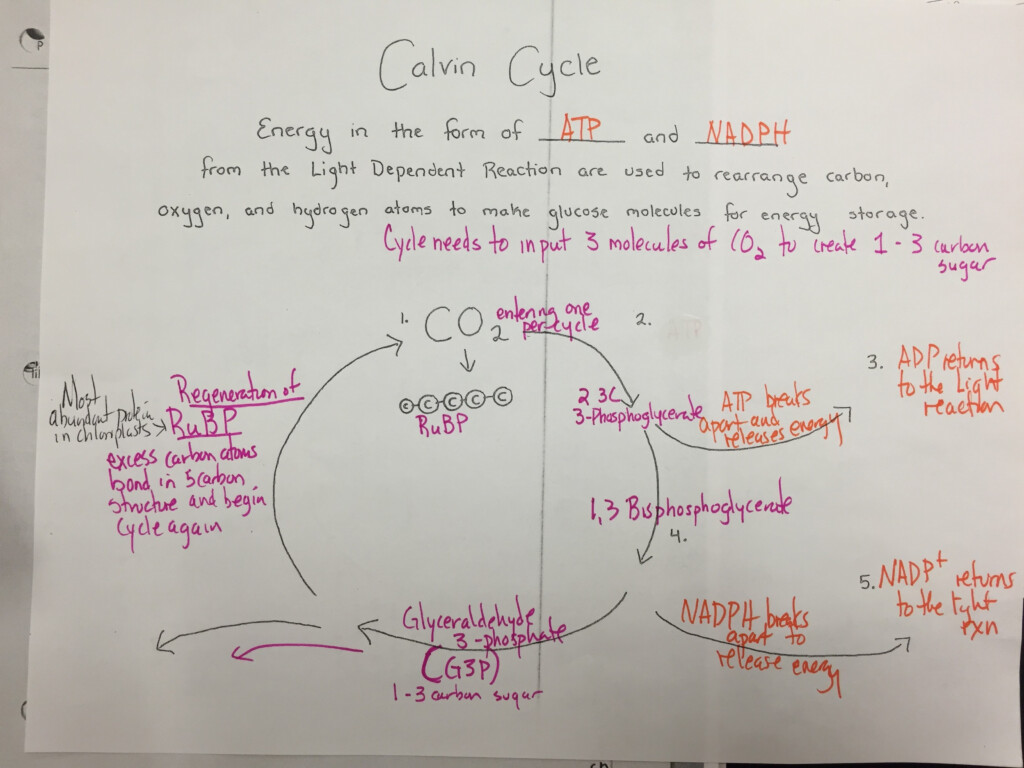 Calvin Cycle
Energy in the form of ATP and NADPH
from the Light Dependent Reaction are used to rearrange carbon,
oxygen, and hydrogen atoms to make glucose molecules for energy storage.
Cycle needs to input 3 molecules of CO2 to create 1 - 3 carbon
sugar
1. CO2
entering one
per cycle
2.
3. ADP returns
to the Light
reaction
C C C C C
RuBP
2 3C
3-Phosphoglycerate
ATP breaks
apart and
releases energy
Most
abundant protein
in chloroplasts
Regeneration of
RuBP
excess carbon atoms
bond in 5 carbon
structure and begin
cycle again
1,3 Bisphosphoglycerate
4.
5. NADP+ returns
to the light
rxn
NADPH breaks
apart to
release energy
Glyceraldehyde
3-phosphate
(G3P)
1-3 carbon sugar
P